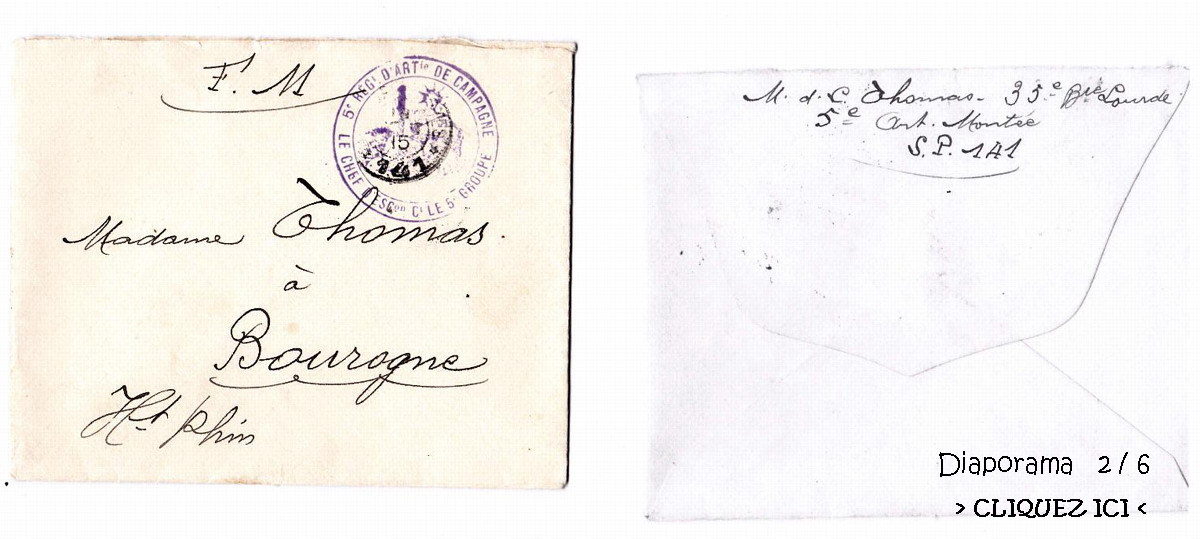 F. M
5e REGt D'ARTie DE CAMPAGNE
LE CHEF D'ESCon Ct LE 5e GROUPE
15
*141*
Madame Thomas.
à
Bourogne
Ht Rhin
M. d. C. Thomas - 35e Bie Lourde
5e Art. Montée
S.P. 141
Diaporama 2 / 6
> CLIQUEZ ICI <